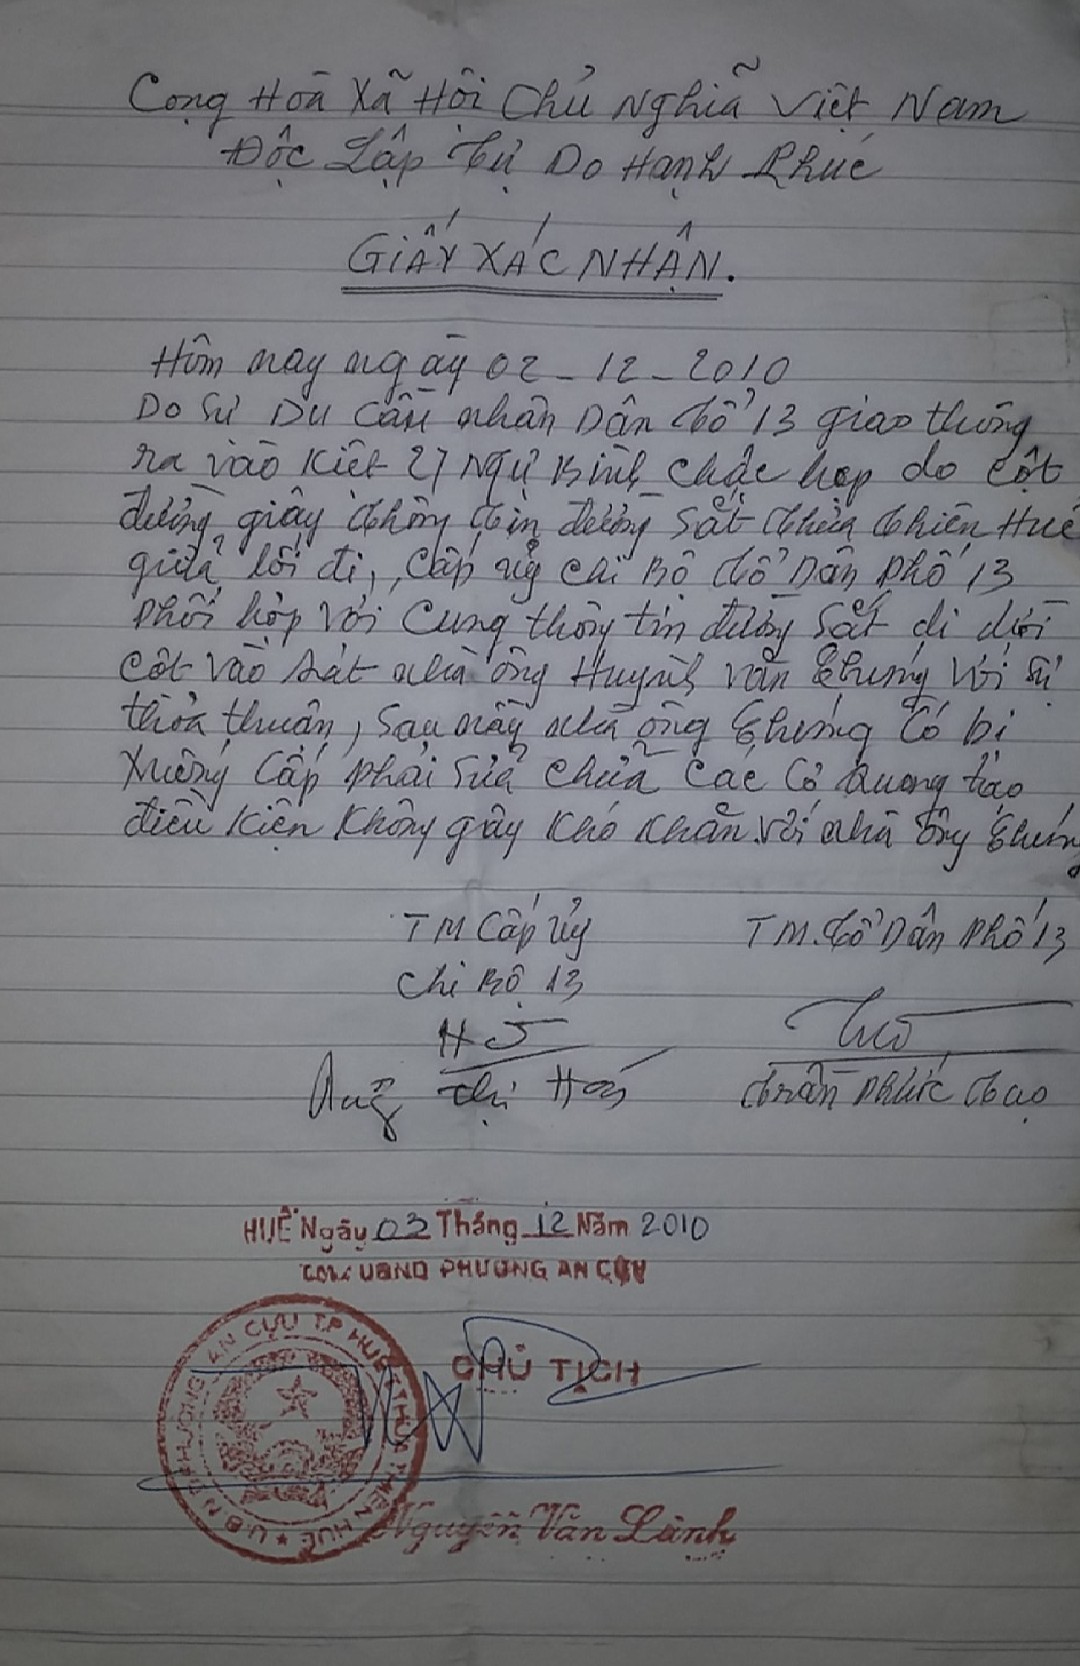 Cọng Hoà Xã Hội Chủ Nghiã Việt Nam
Độc Lập Tự Do Hạnh Phúc
GIẤY XÁC NHẬN.
Hôm nay ngày 02 - 12 - 2010
Do Sự Du Cầu nhân Dân tổ 13 giao thông
ra vào Kiệt 27 Ngự Bình chậc hẹp do Cột
đường giây thông tin đường Sắt thừa thiên Huế
giữa lối đi, Cấp ủy chi Bộ tổ Dân Phố 13
Phối hợp với Cung thông tin đường Sắt di dời
Cột vào sát nhà ông Huỳnh Văn Chưởng với sự
thỏa thuận, Sau nầy nhà ông có bị
Xuống Cấp phải Sửa chửa Các Cơ Quang tạo
điều Kiện Không gây Khó Khăn với nhà ông
TM Cấp ủy
Chi Bộ 13
TM. tổ Dân Phố 13
Thị Hoá
trần Phước tạo
HUẾ Ngày 03 Tháng 12 Năm 2010
UBND PHƯỜNG AN CỰU
CHỦ TỊCH
U.B.N.D PHƯỜNG AN CỰU T.P HUẾ T.THỪA THIÊN HUẾ
Nguyễn Văn Lành